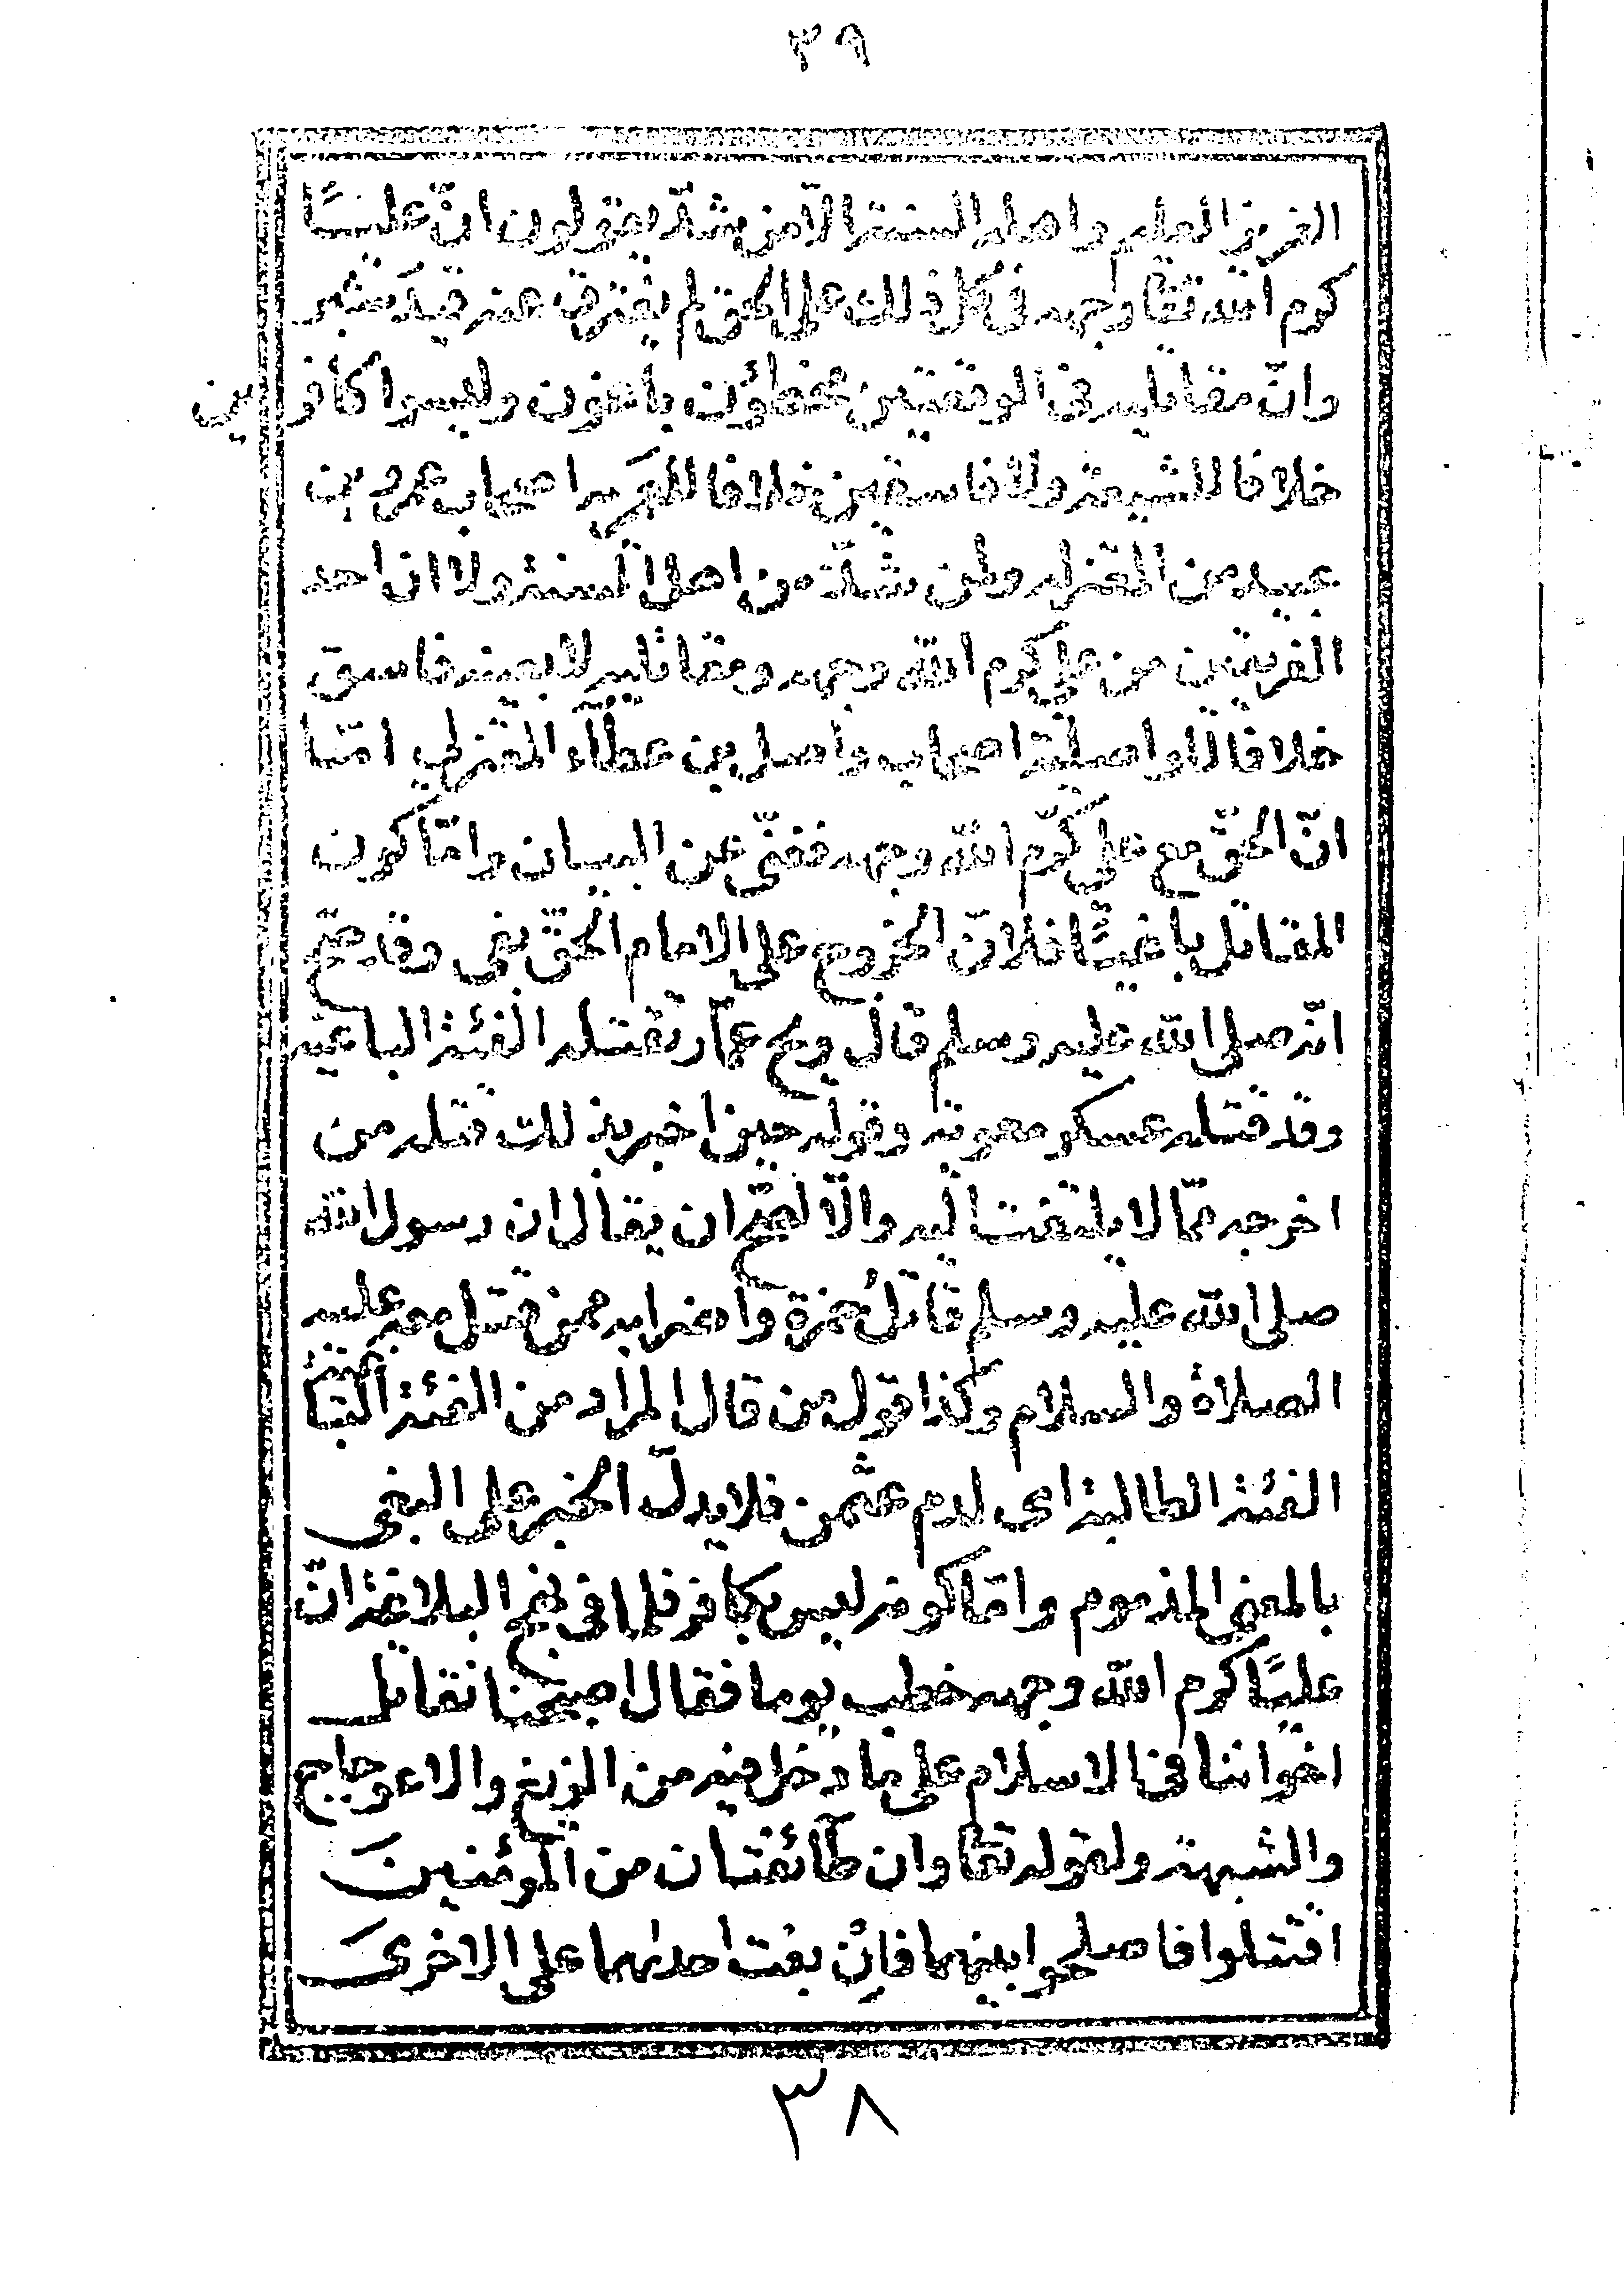 ٣٩
العزيز العليم واهل السنة الا من شذ يقولون انّ عليًّا
كرم الله تعا وجهه في كل ذلك على الحق لم يفترق عنه قيد شبر
وانّ مقاتليه في الوقعتين مخطؤن باغون وليسوا كافرين
خلافا للشيعة ولا فاسقين خلافا للعمرية اصحاب عمرو بن
عبيد من المعتزله ولمن شذّ من اهل السنة ولا ان احد
الفريقين من علي كرم الله وجهه ومقاتليه لا بعينه فاسق
خلافا للواصلية اصحاب واصل بن عطآء المعتزلي امّا
انّ الحقّ مع علي كرّم الله وجهه فغنيّ عن البيان وامّا كون
المقاتل باغيًا فلانّ الخروج على الامام الحقّ بغي وقد صحّ
انّه صلى الله عليه وسلم قال ويح عمّار تقتله الفئة الباغيه
وقد قتله عسكر معوية وقوله حين اخبر بذلك قتله من
اخرجه ممّا لا يلتفت اليه والّا لصحّ ان يقال ان رسول الله
صلى الله عليه وسلم قاتل حمزة واضرابه ممن قتل معه عليه
الصلاة والسلام وكذا قول من قال المراد من الفئة الباغية
الفئة الطالبة اى لدم عثمن فلا يدلّ الخبر على البغى
بالمعنى المذموم وامّا كونه ليس بكافر فلما في نهج البلاغة انّ
عليًّا كرم الله وجهه خطب يوما فقال اصبحنا نقاتل
اخواننا في الاسلام على ما دخل فيه من الزيغ والاعوجاج
والشبهة ولقوله تعا وان طآئفتان من المؤمنينَ
اقتتلوا فاصلحوا بينهما فاِن بغت احدٰىهما على الاخرىَ
٣٨